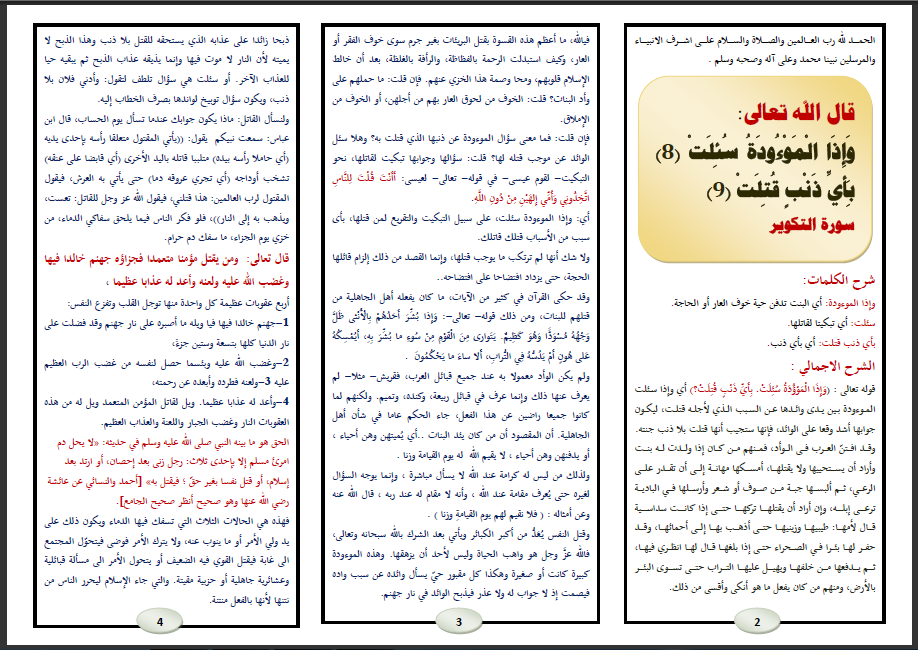 الحمد لله رب العالمين والصلاة والسلام على اشرف الانبياء
والمرسلين نبينا محمد وعلى آله وصحبه وسلم .
قال الله تعالى:
وَإِذَا الْمَوْءُودَةُ سُئِلَتْ (8)
بِأَيِّ ذَنْبٍ قُتِلَتْ (9)
سورة التكوير
شرح الكلمات:
وإذا الموءودة: أي البنت تدفن حية خوف العار أو الحاجة.
سئلت: أي تبكيتا لقاتلها.
بأي ذنب قتلت: أي بأي ذنب.
الشرح الاجمالي :
قوله تعالى : (وَإِذَا الْمَوْؤُدَةُ سُئِلَتْ. بِأَيِّ ذَنْبٍ قُتِلَتْ؟) أي وإذا سئلت
الموءودة بين يدى وائدها عن السبب الذي لأجله قتلت، ليكون
جوابها أشد وقعا على الوائد، فإنها ستجيب أنها قتلت بلا ذنب جنته.
وقد افتنّ العرب في الوأد، فمنهم من كان إذا ولدت له بنت
وأراد أن يستحييها ولا يقتلها، أمسكها مهانة إلى أن تقدر على
الرعي، ثم ألبسها جبة من صوف أو شعر وأرسلها في البادية
ترعى إبله، وإن أراد أن يقتلها تركها حتى إذا كانت سداسية
قال لأمها: طيبيها وزينيها حتى أذهب بها إلى أحمائها، وقد
حفر لها بئرا في الصحراء حتى إذا بلغها قال لها انظري فيها،
ثم يدفعها من خلفها ويهيل عليها التراب حتى تسوى البئر
بالأرض، ومنهم من كان يفعل ما هو أنكى وأقسى من ذلك.
2
فيالله، ما أعظم هذه القسوة بقتل البريئات بغير جرم سوى خوف الفقر أو
العار، وكيف استبدلت الرحمة بالفظاظة، والرأفة بالغلظة، بعد أن خالط
الإسلام قلوبهم، ومحا وصمة هذا الخزي عنهم. فإن قلت: ما حملهم على
وأد البنات؟ قلت: الخوف من لحوق العار بهم من أجلهن، أو الخوف من
الإملاق.
فإن قلت: فما معنى سؤال الموءودة عن ذنبها الذي قتلت به؟ وهلا سئل
الوائد عن موجب قتله لها؟ قلت: سؤالها وجوابها تبكيت لقاتلها، نحو
التبكيت- لقوم عيسى- في قوله- تعالى- لعيسى: أَأَنْتَ قُلْتَ لِلنَّاسِ
اتَّخِذُونِي وَأُمِّي إِلهَيْنِ مِنْ دُونِ اللَّهِ.
أي: وإذا الموءودة سئلت، على سبيل التبكيت والتقريع لمن قتلها، بأى
سبب من الأسباب قتلك قاتلك.
ولا شك أنها لم ترتكب ما يوجب قتلها، وإنما القصد من ذلك إلزام قائلها
الحجة، حتى يزداد افتضاحا على افتضاحه..
وقد حكى القرآن في كثير من الآيات، ما كان يفعله أهل الجاهلية من
قتلهم للبنات، ومن ذلك قوله- تعالى-: وَإِذا بُشِّرَ أَحَدُهُمْ بِالْأُنْثى ظَلَّ
وَجْهُهُ مُسْوَدًّا وَهُوَ كَظِيمٌ. يَتَوارى مِنَ الْقَوْمِ مِنْ سُوءِ ما بُشِّرَ بِهِ، أَيُمْسِكُهُ
عَلى هُونٍ أَمْ يَدُسُّهُ فِي التُّرابِ، أَلا ساءَ ما يَحْكُمُونَ .
ولم يكن الوأد معمولا به عند جميع قبائل العرب، فقريش- مثلا- لم
يعرف عنها ذلك وإنما عرف في قبائل ربيعة، وكنده، وتميم. ولكنهم لما
كانوا جميعا راضين عن هذا الفعل، جاء الحكم عاما في شأن أهل
الجاهلية. أن المقصود أن من كان يئد البنات ..أي يُميتهن وهن أحياء ،
أو يدفنهن وهن أحياء ، لا يقيم الله له يوم القيامة وزنا .
ولذلك من ليس له كرامة عند الله لا يسأل مباشرة ، وإنما يوجه السؤال
لغيره حتى يُعرف مقامة عند الله ، وأنه لا مقام له عند ربه ، قال الله عنه
وعن أمثاله : ( فلا نقيم لهم يوم القيامةِ وزنا ) .
وقتل النفس يُعَدُّ من أكبر الكبائر ويأتي بعد الشرك بالله سبحانه وتعالى،
فالله عزَّ وجل هو واهب الحياة وليس لأحد أن يزهقها. وهذه الموءودة
كبيرة كانت أو صغيرة وهكذا كل مقبور حيّ يسأل وائده عن سبب واده
فيصمت إذ لا جواب له ولا عذر فيذبح الوائد في نار جهنم.
3
ذبحا زائدا على عذابه الذي يستحقه للقتل بلا ذنب وهذا الذبح لا
يميته لأن النار لا موت فيها وإنما يذيقه عذاب الذبح ثم يبقيه حيا
للعذاب الآخر. أو سئلت هي سؤال تلطف لتقول: وأدني فلان بلا
ذنب، ويكون سؤال توبيخ لوائدها بصرف الخطاب إليه.
ولنسأل القاتل: ماذا يكون جوابك عندما تسأل يوم الحساب، قال ابن
عباس: سمعت نبيكم يقول: ((يأتي المقتول متعلقا رأسه بإحدى يديه
(أي حاملا رأسه بيده) متلببا قاتله باليد الأخرى (أي قابضا على عنقه)
تشخب أوداجه (أي تجري عروقه دما) حتى يأتي به العرش، فيقول
المقتول لرب العالمين: هذا قتلني، فيقول الله عز وجل للقاتل: تعست،
ويذهب به إلى النار))، فلو فكر الناس فيما يلحق سفاكي الدماء، من
خزي يوم الجزاء، ما سفك دم حرام.
قال تعالى: ومن يقتل مؤمنا متعمدا فجزاؤه جهنم خالدا فيها
وغضب الله عليه ولعنه وأعد له عذابا عظيما ،
أربع عقوبات عظيمة كل واحدة منها توجل القلب وتفزع النفس:
1-جهنم خالدا فيها فيا ويله ما أصبره على نار جهنم وقد فضلت على
نار الدنيا كلها بتسعة وستين جزءً،
2-وغضب الله عليه وبئسما حصل لنفسه من غضب الرب العظيم
عليه 3-ولعنه فطرده وأبعده عن رحمته،
4-وأعد له عذابا عظيما. ويل لقاتل المؤمن المتعمد ويل له من هذه
العقوبات النار وغضب الجبار واللعنة والعذاب العظيم.
الحق هو ما بينه النبي صلى الله عليه وسلم في حديثه: «لا يحل دم
امرئ مسلم إلا بإحدى ثلاث: رجل زنى بعد إحصان، أو ارتد بعد
إسلام، أو قتل نفسا بغير حقّ ؛ فيقتل به» [أحمد والنسائي عن عائشة
رضي الله عنها وهو صحيح أنظر صحيح الجامع].
فهذه هي الحالات الثلاث التي تسفك فيها الدماء ويكون ذلك على
يد ولي الأمر أو ما ينوب عنه، ولا يترك الأمر فوضى فيتحوّل المجتمع
الى غابة فيقتل القوي فيه الضعيف أو يتحول الأمر الى مسألة قبائلية
وعشائرية جاهلية أو حزبية مقيتة. والتي جاء الإسلام ليحرر الناس من
نتنها لأنها بالفعل منتنة.
4